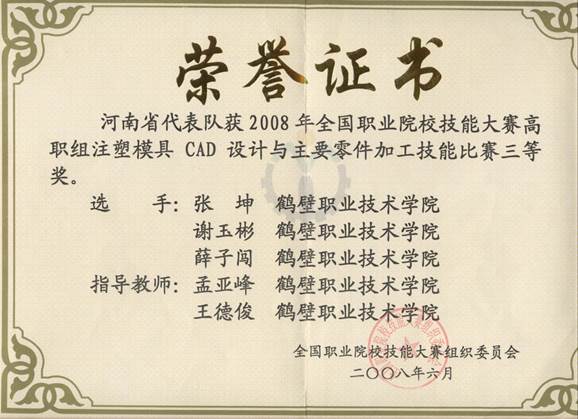 荣誉证书
河南省代表队获2008年全国职业院校技能大赛高
职组注塑模具 CAD 设计与主要零件加工技能比赛三等
奖。
选 手：张 坤 鹤壁职业技术学院
谢玉彬 鹤壁职业技术学院
薛子闯 鹤壁职业技术学院
指导教师：孟亚峰 鹤壁职业技术学院
王德俊 鹤壁职业技术学院
全国职业院校技能大赛组织委员会
二〇〇八年六月